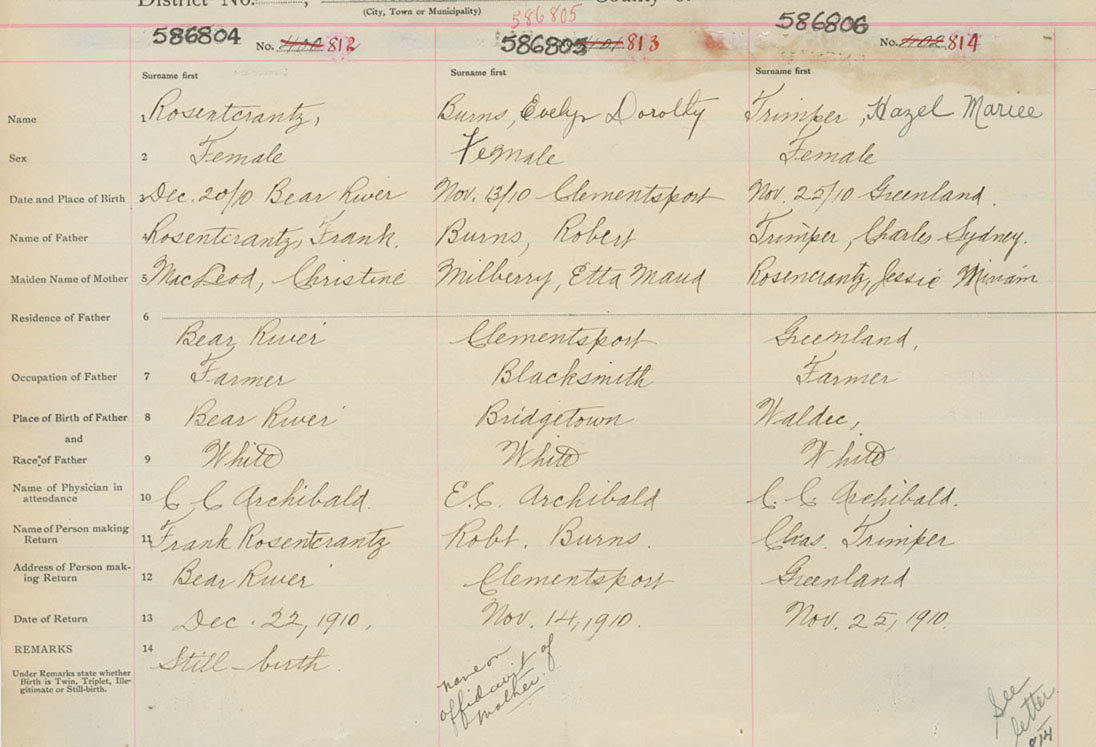 District No.
(City, Town or Municipality)
586805
586804 No. 812
586805 813
586806 No. 814
Surname first Surname first Surname first
Name 1 Rosentcrantz, Burns, Evelyn Dorothy Trimper, Hazel Mariee
Sex 2 Female Female Female
Date and Place of Birth 3 Dec. 20/10 Bear River Nov. 13/10 Clementsport Nov. 25/10 Greenland.
Name of Father 4 Rosentcrantz, Frank. Burns, Robert Trimper, Charles Sydney.
Maiden Name of Mother 5 MacLeod, Christine Milberry, Etta Maud Rosencrantz, Jessie Miriam
Residence of Father 6
Bear River Clementsport Greenland,
Occupation of Father 7 Farmer Blacksmith Farmer
Place of Birth of Father 8 Bear River Bridgetown Waldec,
and
Race of Father 9 White White White
Name of Physician in
attendance 10 C. C. Archibald. E.C. Archibald C. C. Archibald.
Name of Person making
Return 11 Frank Rosentcrantz Robt. Burns. Chas. Trimper
Address of Person mak-
ing Return 12 Bear River Clementsport Greenland
Date of Return 13 Dec. 22, 1910. Nov. 14, 1910. Nov. 25, 1910.
REMARKS 14 Still-birth.
Under Remarks state whether
Birth is Twin, Triplet, Ille-
gitimate or Still-birth.
name on
affidavit of
mother.
See
letter
814